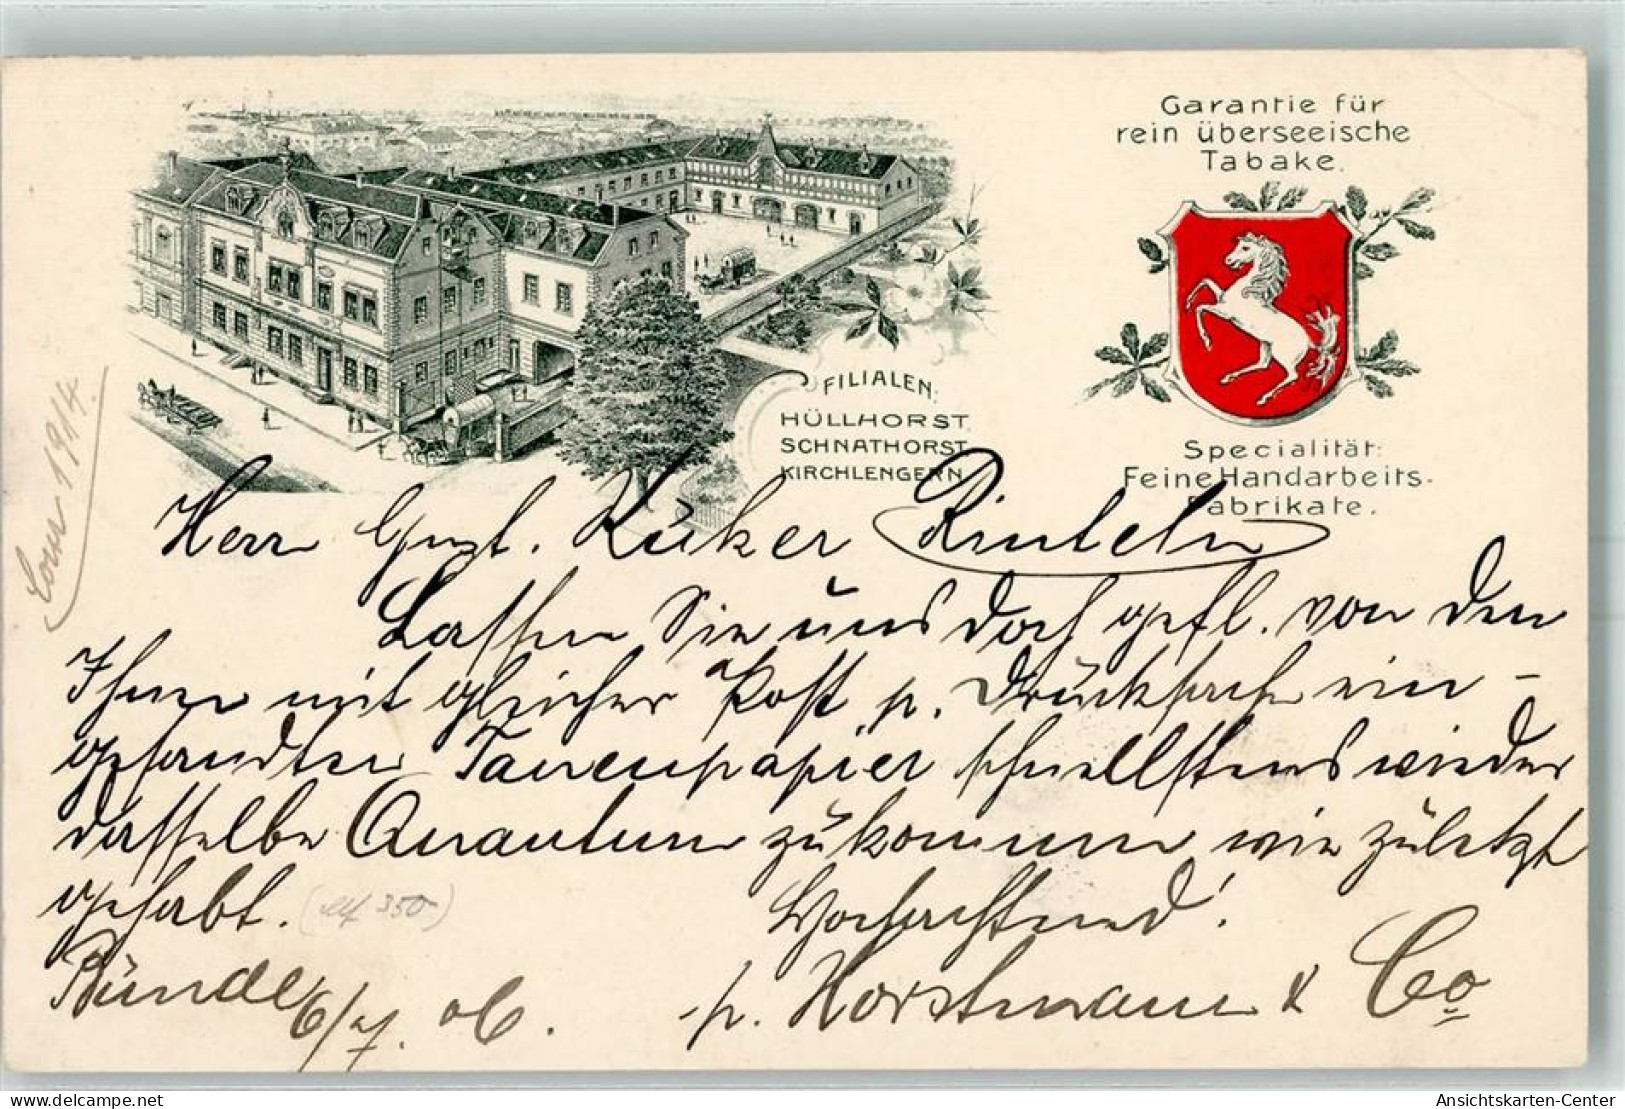 Garantie für
rein überseeische
Tabake.
FILIALEN:
HÜLLHORST.
SCHNATHORST.
KIRCHLENGERN.
Specialität:
Feine Handarbeits-
Fabrikate.
Herrn Gust. Rinteln
Lassen Sie uns doch gefl. von den
Ihnen mit gleicher Post p. Drücksache ein-
gesandten schnellstens wieder
dasselbe Quantum zükommen wie zületzt
gehabt. (M 350)
Hochachtend!
Bünde 6/7. 06. p. Horstmann & Co
19/4.
www.delcampe.net
Ansichtskarten-Center